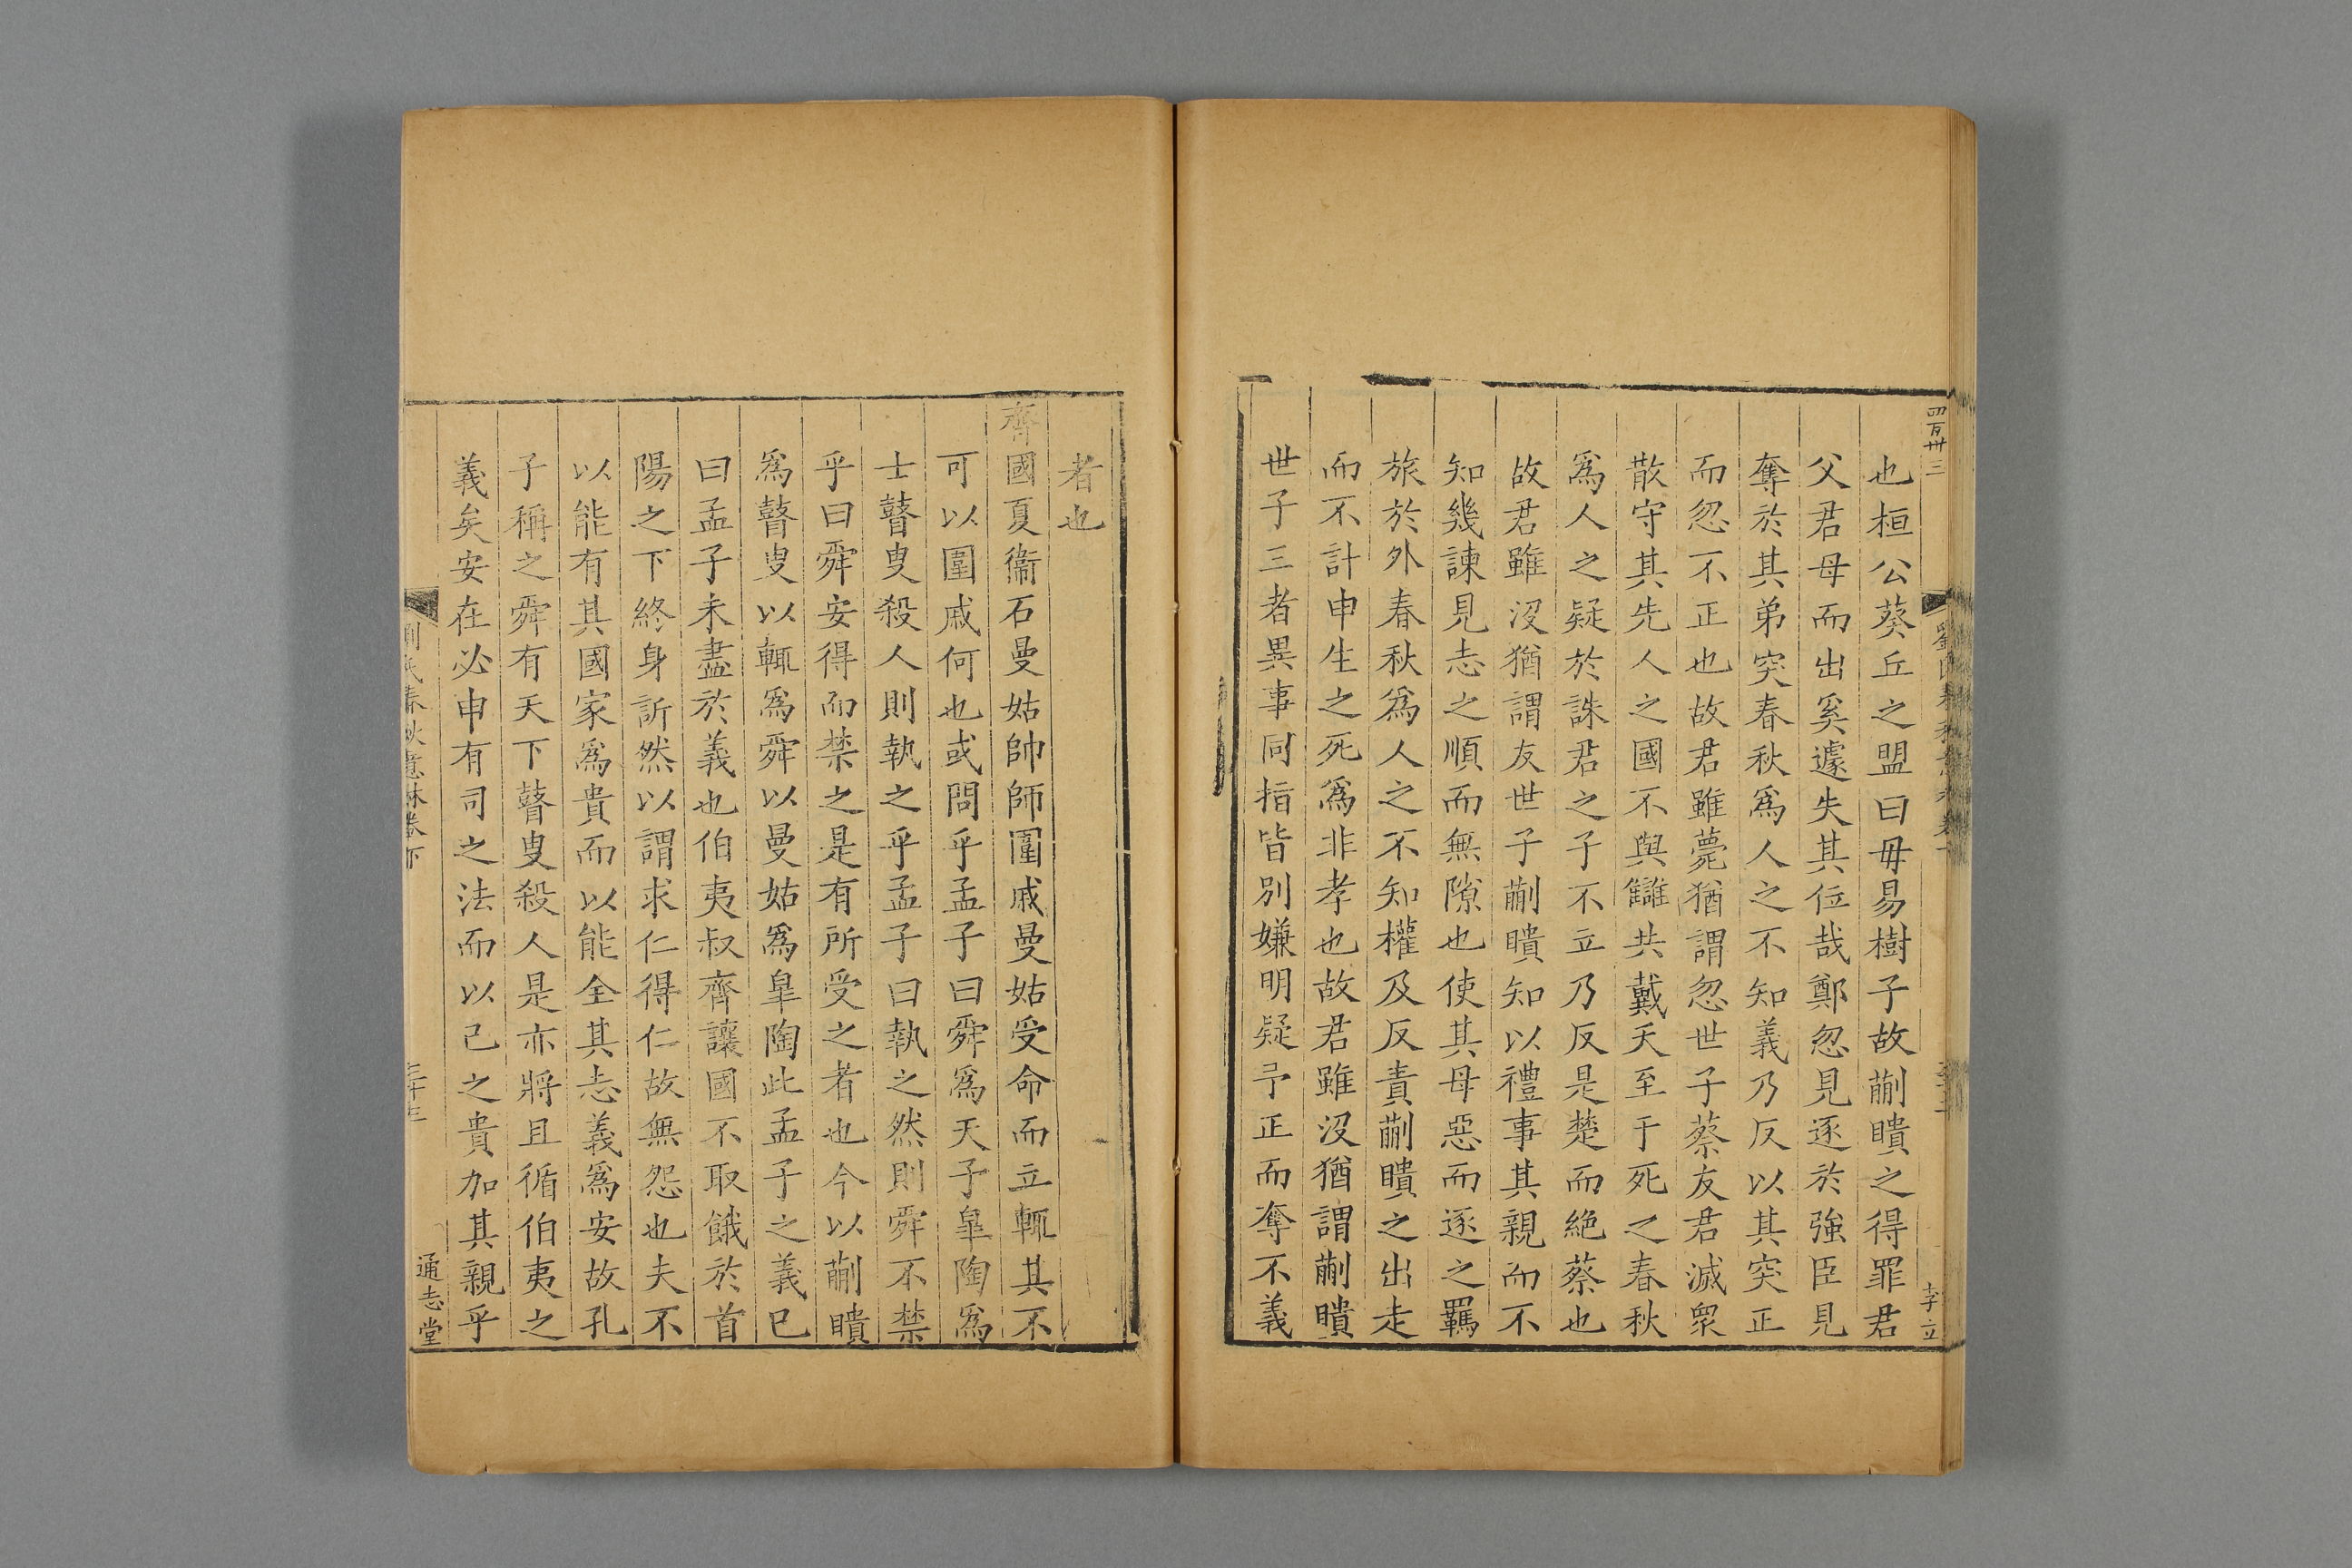 四百卅三
李立
也桓公葵丘之盟曰毋易樹子故蒯聵之得罪君
父君母而出奚遽失其位哉鄭忽見逐於強臣見
奪於其弟突春秋為人之不知義乃反以其突正
而忽不正也故君雖薨猶謂忽世子蔡友君滅眾
散守其先人之國不與讎共戴天至于死之春秋
爲人之疑於誅君之子不立乃反是楚而絶蔡也
故君雖沒猶謂友世子蒯聵知以禮事其親而不
知幾諫見志之順而無隙也使其母惡而逐之羈
旅於外春秋爲人之不知權及反責蒯聵之出走
而不計申生之死爲非孝也故君雖沒猶謂蒯聵
世子三者異事同指皆別嫌明疑予正而奪不義
者也
齊國夏衞石曼姑帥師圍戚曼姑受命而立輒其不
可以圍戚何也或問乎孟子曰舜爲天子皐陶爲
士瞽叟殺人則執之乎孟子曰執之然則舜不禁
乎曰舜安得而禁之是有所受之者也今以蒯聵
爲瞽叟以輒爲舜以曼姑爲皐陶此孟子之義已
曰孟子未盡於義也伯夷叔齊讓國不取餓於首
陽之下終身訢然以謂求仁得仁故無怨也夫不
以能有其國家爲貴而以能全其志義爲安故孔
子稱之舜有天下瞽叟殺人是亦將且循伯夷之
義矣安在必申有司之法而以己之貴加其親乎
劉氏春秋意林卷下
三十三
通志堂